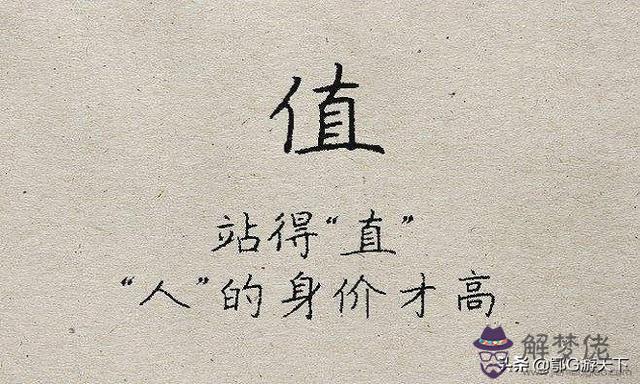 值
站得“直”
“人”的身价才高
解梦佬
头条 @郭G游天下